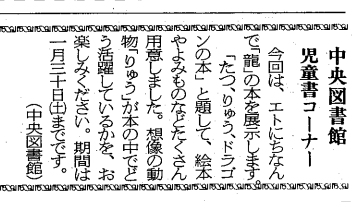 中央図書館
児童書コーナー
今回は、エトにちなん
で「龍」の本を展示します。
「たつ、りゅう、ドラゴ
ンの本」と題して、絵本
やよみものなどたくさん
用意しました。想像の動
物「りゅう」が本の中でど
う活躍しているかを、お
楽しみください。期間は
一月三十日(土)までです。
(中央図書館)